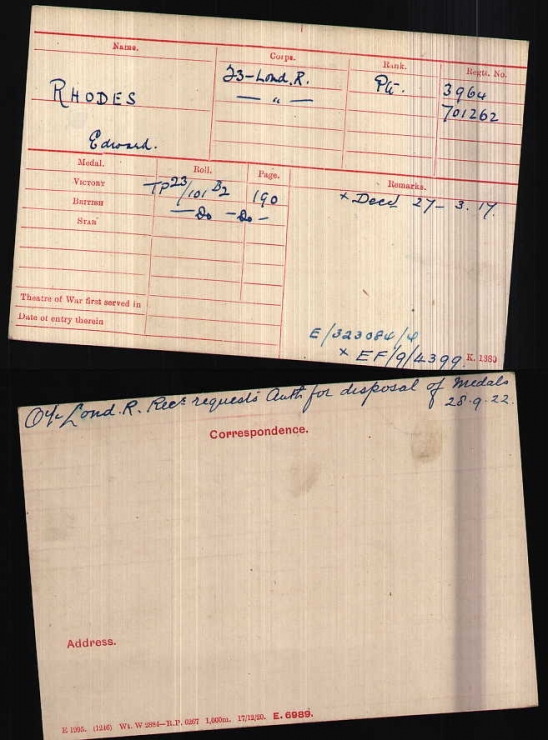 Name. Corps. Rank. Regtl. No.
RHODES 23-Lond. R. Pte. 3964
— " — 701262
Edward.
Medal. Roll. Page. Remarks.
VICTORY TP23/101 B2 190 x Decd 27-3.17.
BRITISH —Do —Do—
STAR
Theatre of War first served in
Date of entry therein
E/323084/4
x EF/9/4399 K. 1380
O i/c Lond. R. Recs requests Auth for disposal of Medals
28.9.22.
Correspondence.
Address.
E 1995. (1246) Wt. W 2884—R.P. 6267 1,000m. 17/12/20. E. 6989.